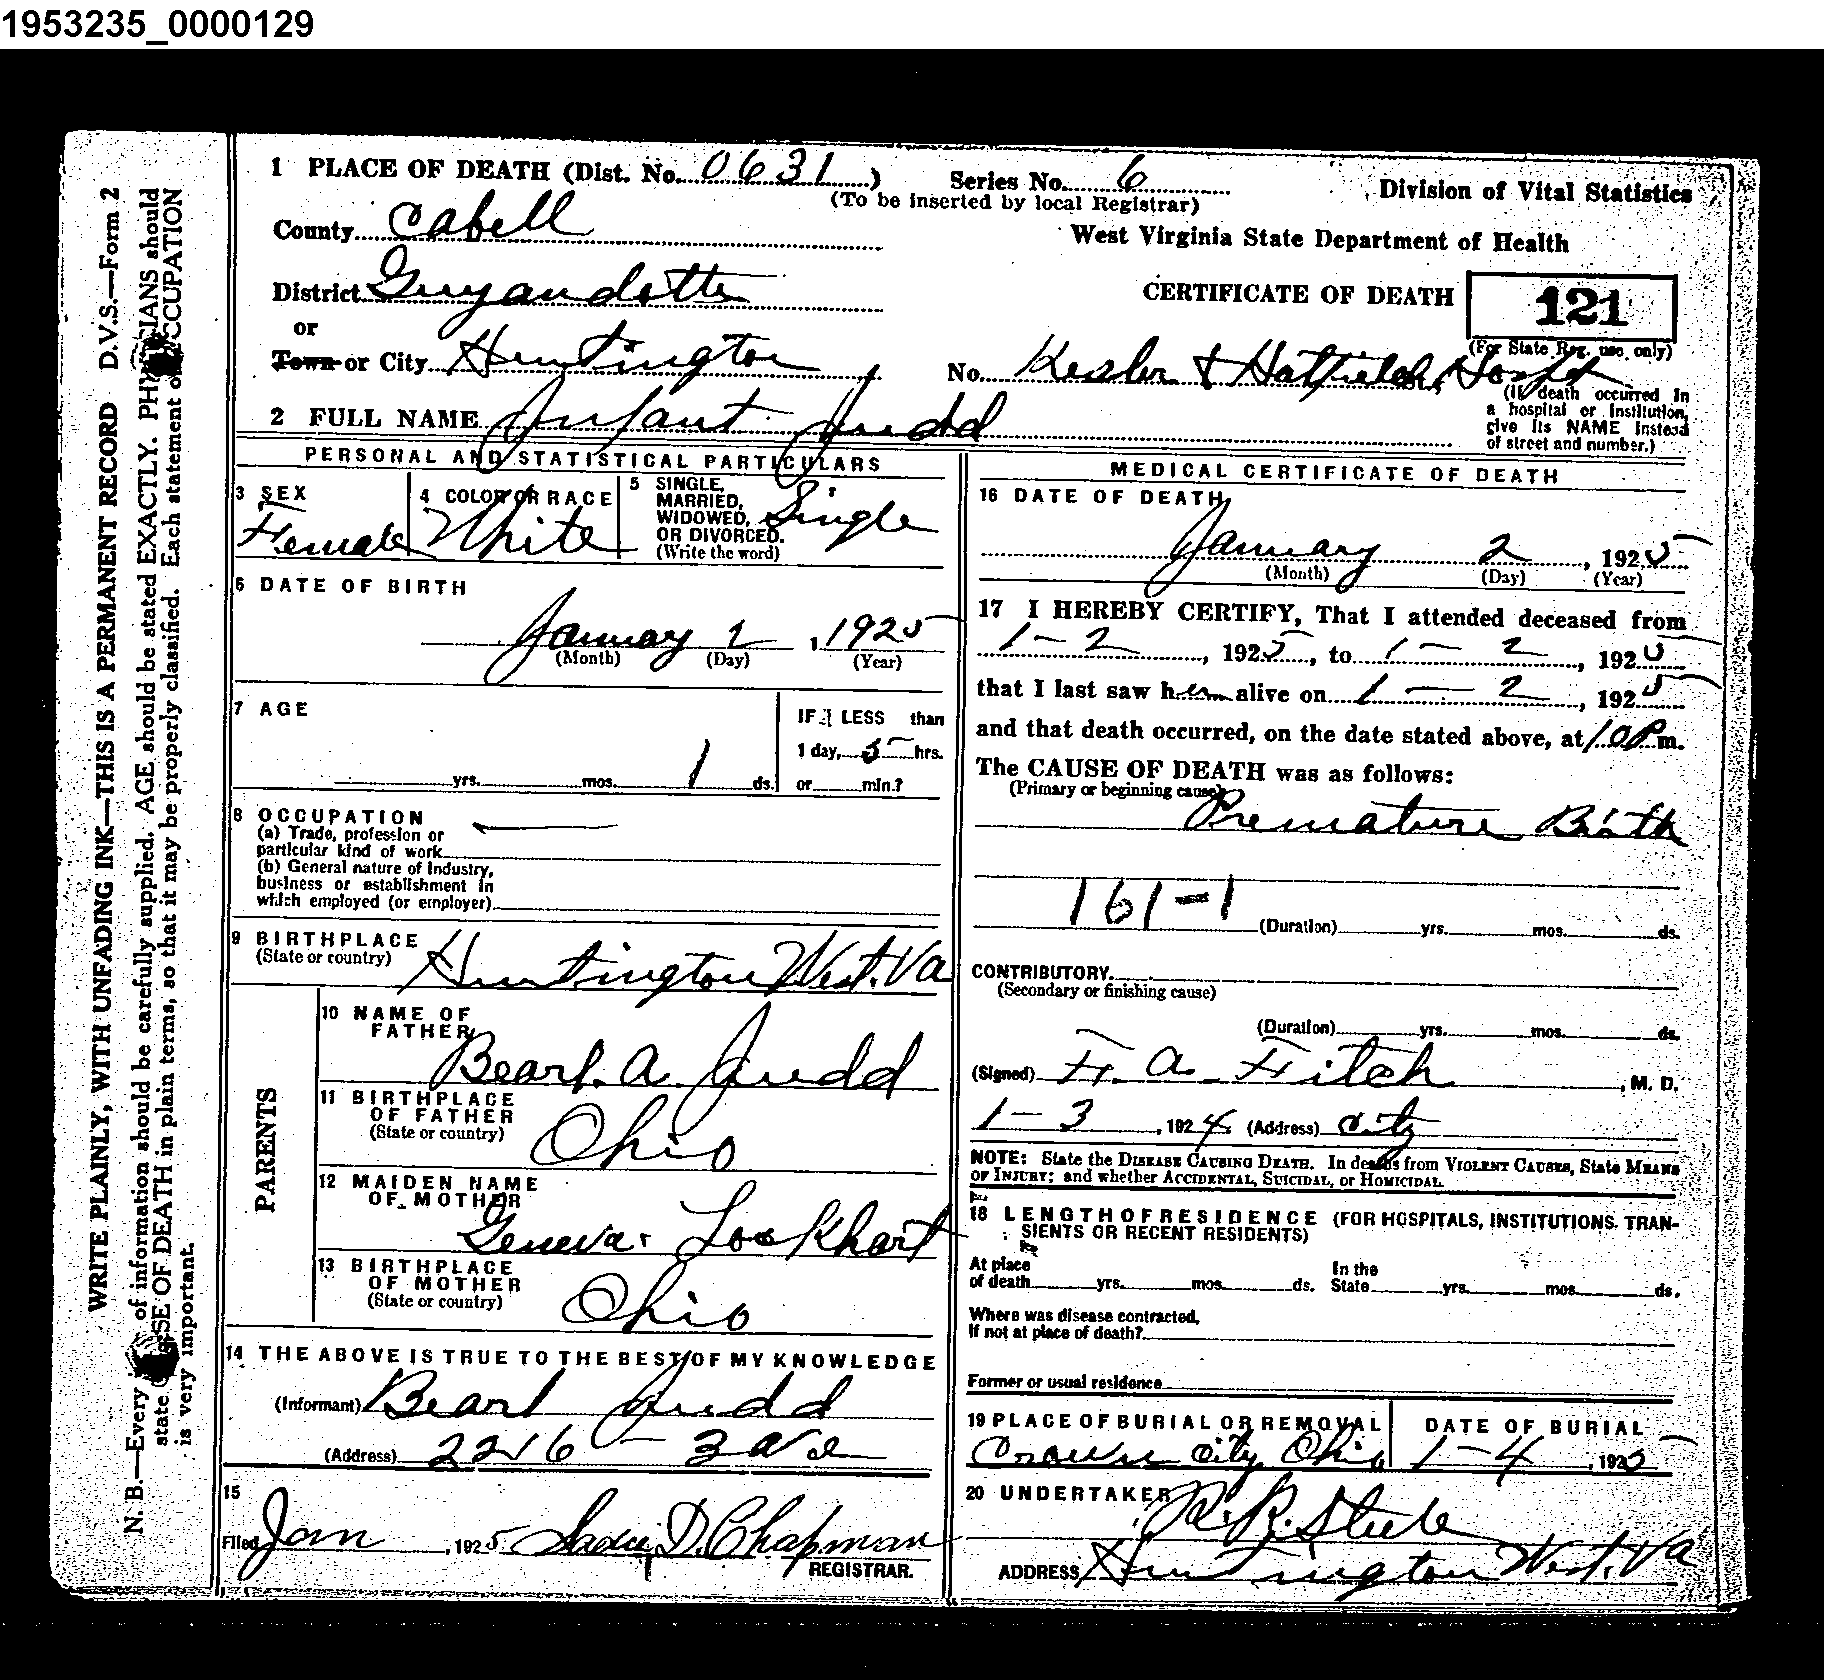 1953235_0000129
1 PLACE OF DEATH (Dist. No. 0631 ) Series No. 6
(To be inserted by local Registrar)
Division of Vital Statistics
County Cabell
West Virginia State Department of Health
District Guyandotte
CERTIFICATE OF DEATH 121
(For State Reg. use only)
or
Town or City Huntington No. Kesler & Hatfield Hospt
(If death occurred in
a hospital or institution,
give its NAME instead
of street and number.)
2 FULL NAME Infant Judd
PERSONAL AND STATISTICAL PARTICULARS
3 SEX
Female
4 COLOR OR RACE
White
5 SINGLE,
MARRIED,
WIDOWED,
OR DIVORCED.
(Write the word)
Single
6 DATE OF BIRTH
January 2, 1925
(Month) (Day) (Year)
7 AGE
yrs. mos. 1 ds.
IF LESS than
1 day, 5 hrs.
or min.?
8 OCCUPATION
(a) Trade, profession or
particular kind of work
(b) General nature of Industry,
business or establishment in
which employed (or employer)
9 BIRTHPLACE
(State or country) Huntington West. Va
PARENTS
10 NAME OF
FATHER
Bearl. A. Judd
11 BIRTHPLACE
OF FATHER
(State or country) Ohio
12 MAIDEN NAME
OF MOTHER
Geneva Lockhart
13 BIRTHPLACE
OF MOTHER
(State or country) Ohio
14 THE ABOVE IS TRUE TO THE BEST OF MY KNOWLEDGE
(Informant) Bearl Judd
(Address) 2216 - 3 ave
15
Filed Jan, 1925 Sadie D. Chapman
REGISTRAR.
MEDICAL CERTIFICATE OF DEATH
16 DATE OF DEATH
January 2, 1925
(Month) (Day) (Year)
17 I HEREBY CERTIFY, That I attended deceased from
1-2, 1925, to 1-2, 1925
that I last saw her alive on 1-2, 1925
and that death occurred, on the date stated above, at 10 P m.
The CAUSE OF DEATH was as follows:
(Primary or beginning cause)
Premature Birth
161-1
(Duration) yrs. mos. ds.
CONTRIBUTORY
(Secondary or finishing cause)
(Duration) yrs. mos. ds.
(Signed) F. A. Fitch, M. D.
1-3, 1924 (Address) City
NOTE: State the DISEASE CAUSING DEATH. In deaths from VIOLENT CAUSES, State MEANS
OF INJURY; and whether ACCIDENTAL, SUICIDAL, or HOMICIDAL.
18 LENGTH OF RESIDENCE (FOR HOSPITALS, INSTITUTIONS, TRAN-
SIENTS OR RECENT RESIDENTS)
At place
of death yrs. mos. ds.
In the
State yrs. mos. ds.
Where was disease contracted,
If not at place of death?
Former or usual residence
19 PLACE OF BURIAL OR REMOVAL
Crown City, Ohio
DATE OF BURIAL
1-4, 1925
20 UNDERTAKER
R. R. Steele
ADDRESS Huntington West. Va
WRITE PLAINLY, WITH UNFADING INK—THIS IS A PERMANENT RECORD D.V.S.—Form 2
N. B.—Every of information should be carefully supplied. AGE should be stated EXACTLY. PHYSICIANS should
state OF DEATH in plain terms, so that it may be properly classified. Each statement of OCCUPATION
is very important.